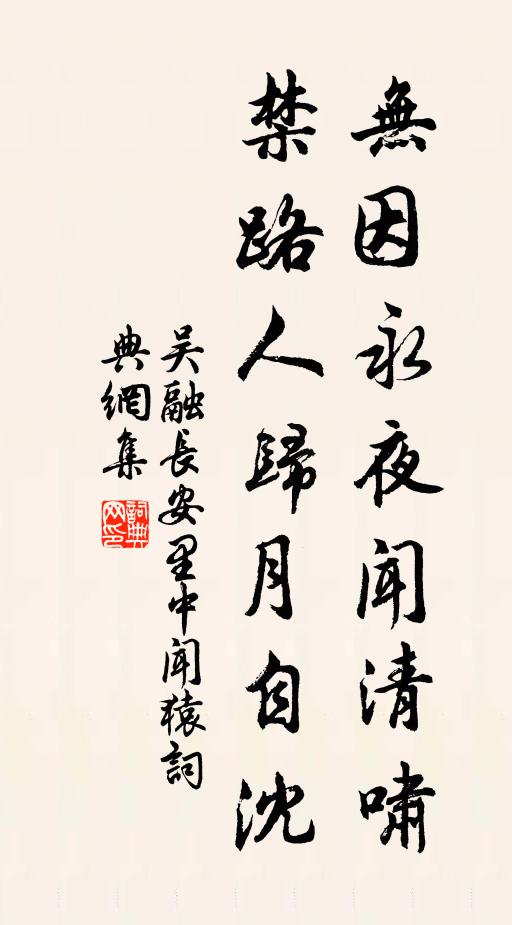 無因永夜聞清嘯
禁路人歸月自沈
吴融長安里中聞猿詞
典網集
詞典网印